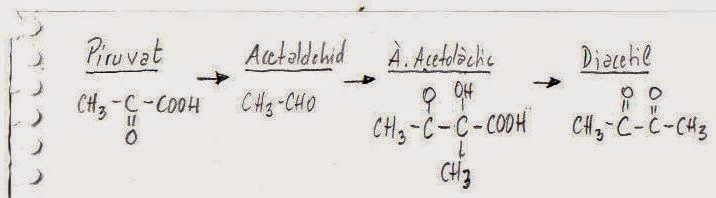 Piruvat → Acetaldehid → À. Acetolàctic → Diacetil
O OH O O
CH3-C-COOH CH3-CHO CH3-C-C-COOH CH3-C-C-CH3
O CH3